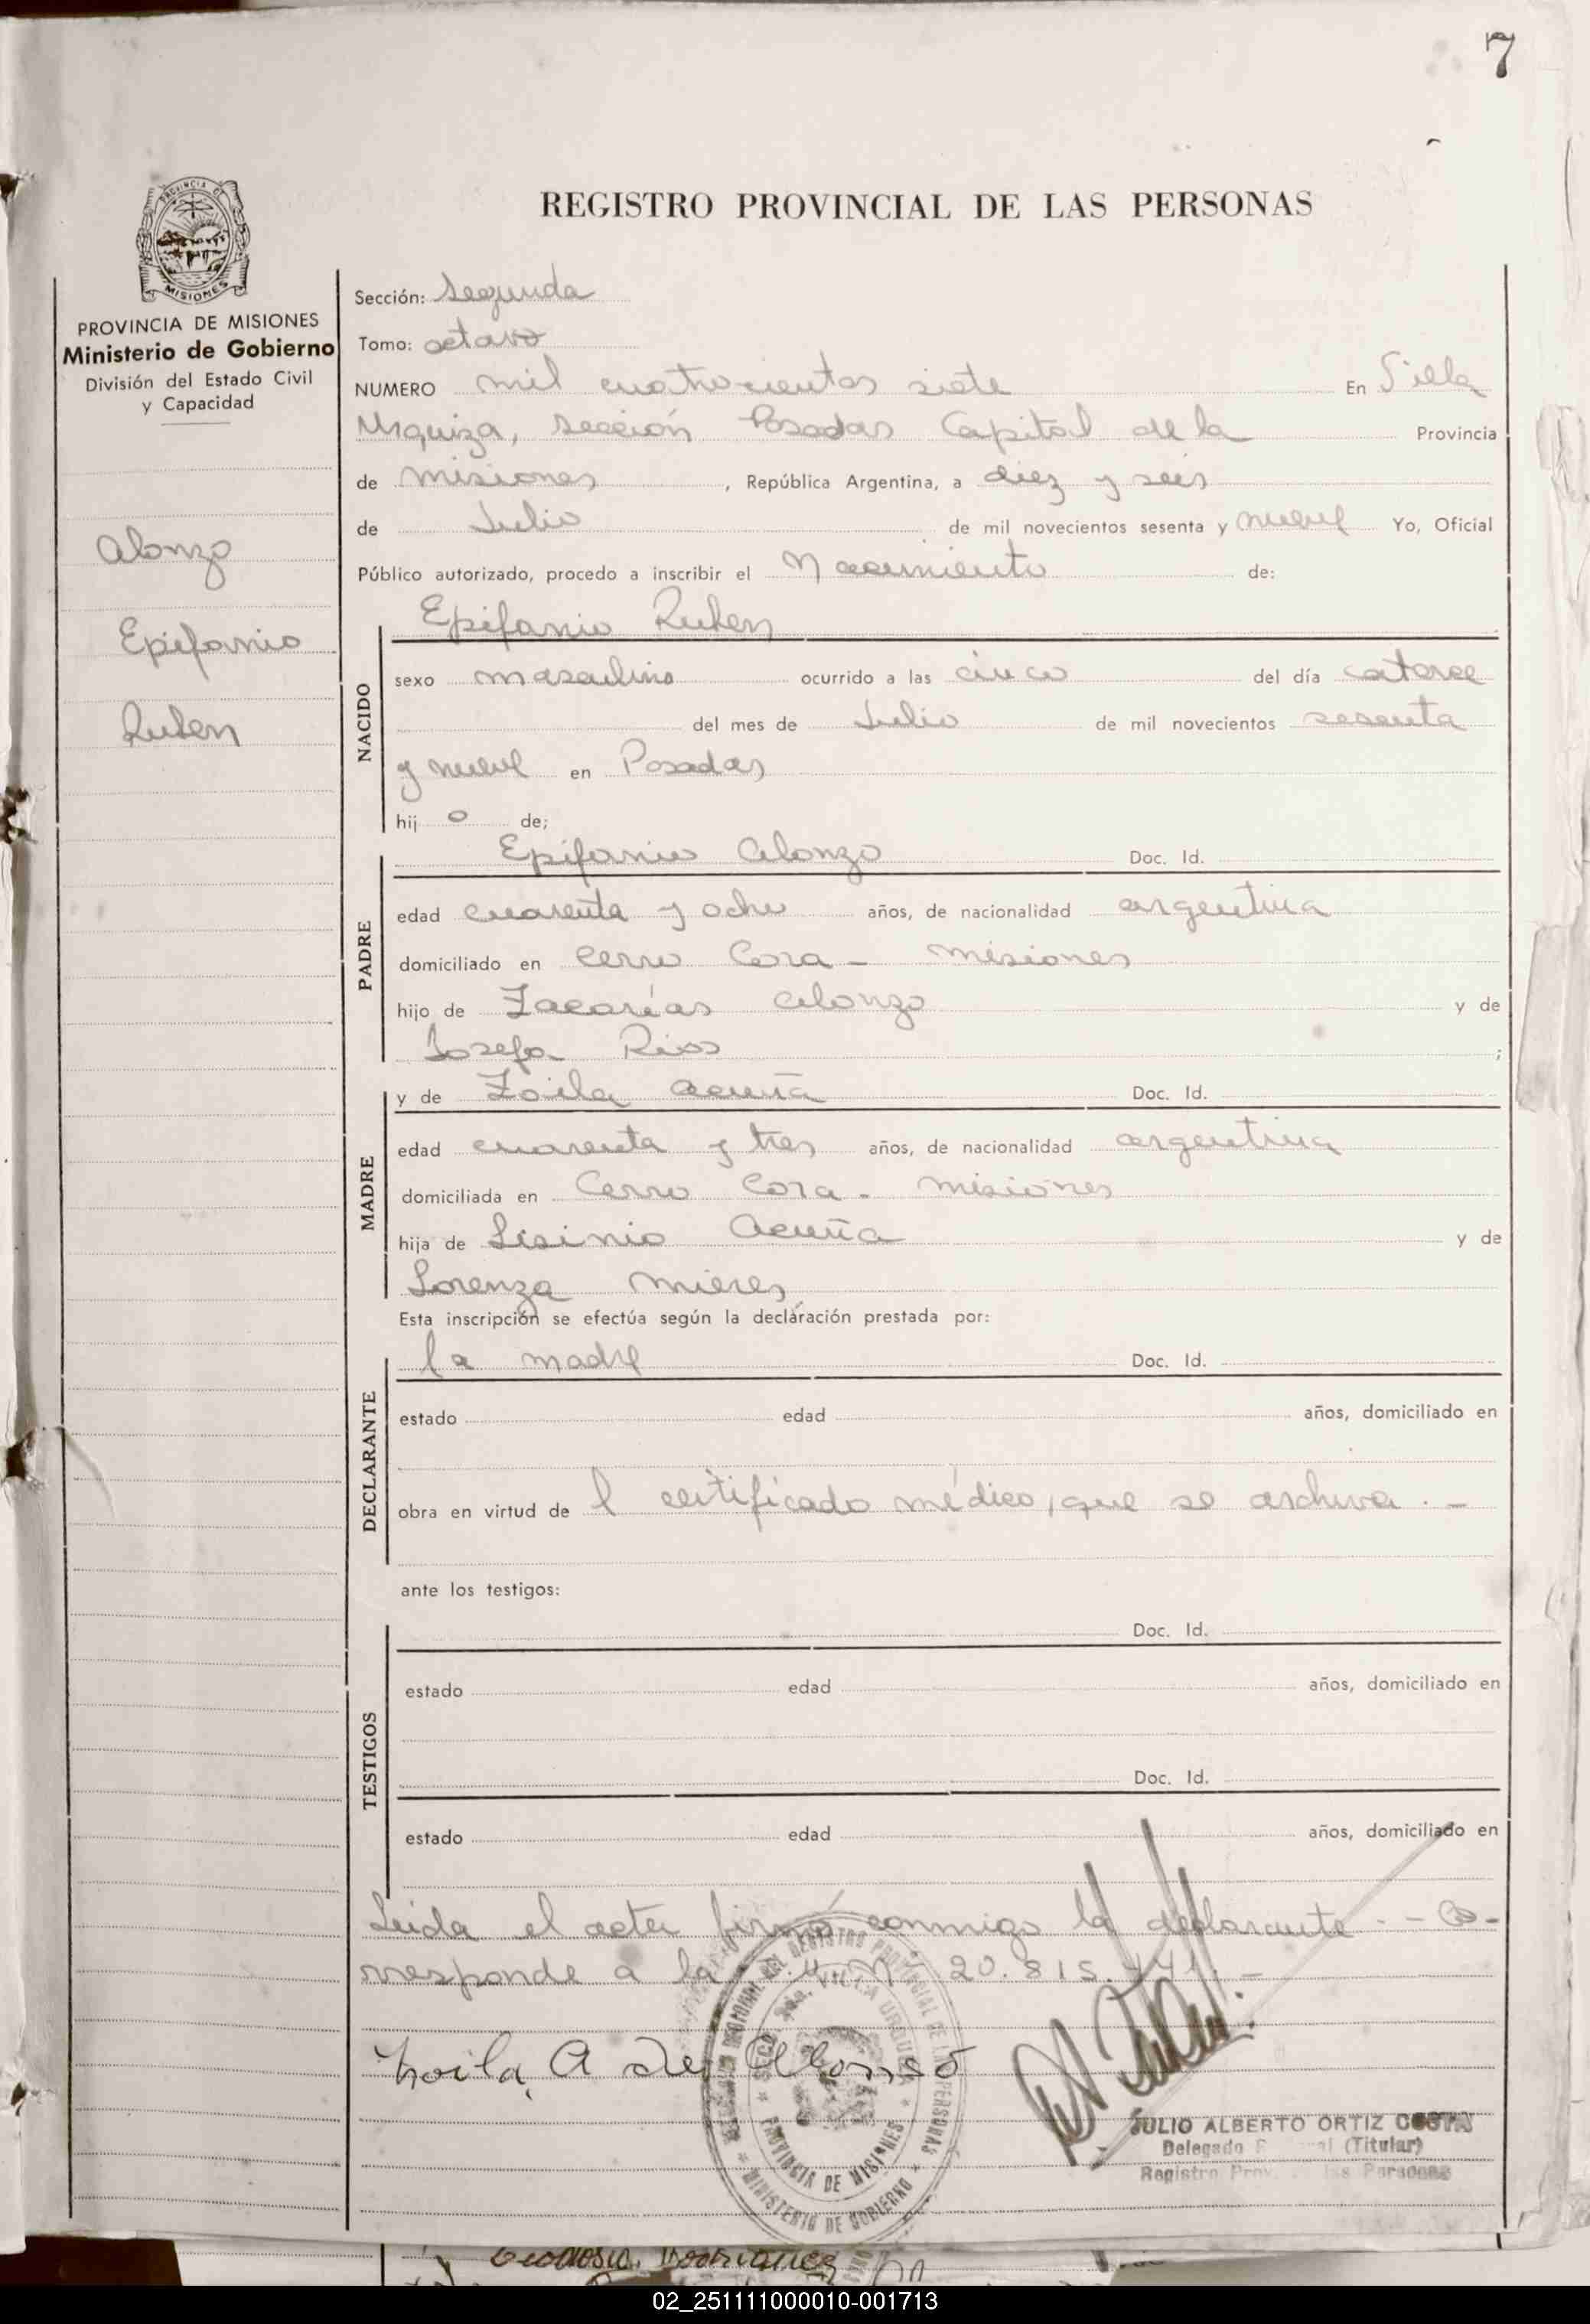 7
REGISTRO PROVINCIAL DE LAS PERSONAS
PROVINCIA DE MISIONES
Ministerio de Gobierno
División del Estado Civil
y Capacidad
Alonzo
Epifanio
Ruben
Sección: Segunda
Tomo: octavo
NUMERO mil cuatrocientos siete En Villa
Urquiza, Sección Posadas Capital de la Provincia
de Misiones, República Argentina, a diez y seis
de Julio de mil novecientos sesenta y nueve Yo, Oficial
Público autorizado, procedo a inscribir el Nacimiento de:
Epifanio Ruben
NACIDO
sexo masculino ocurrido a las cinco del día catorce
del mes de Julio de mil novecientos sesenta
y nueve en Posadas
hij o de;
PADRE
Epifanio Alonzo Doc. Id.
edad cuarenta y ocho años, de nacionalidad argentina
domiciliado en Cerro Cora - Misiones
hijo de Zacarías Alonzo y de
Josefa Rios ;
MADRE
y de Zoila Acuña Doc. Id.
edad cuarenta y tres años, de nacionalidad argentina
domiciliada en Cerro Cora - Misiones
hija de Lisinio Acuña y de
Lorenza Mieres
Esta inscripción se efectúa según la declaración prestada por:
DECLARANTE
la madre Doc. Id.
estado edad años, domiciliado en
obra en virtud de l certificado médico, que se archiva . -
ante los testigos:
TESTIGOS
Doc. Id.
estado edad años, domiciliado en
Doc. Id.
estado edad años, domiciliado en
Leída el acta firmó conmigo la declarante . - Co-
rresponde a la 20.815.441. -
Zoila A de Alonso
PROVINCIA DE MISIONES
MINISTERIO DE GOBIERNO
JULIO ALBERTO ORTIZ COSTA
Delegado (Titular)
Registro Prov. Personas
Rodriguez
02_251111000010-001713